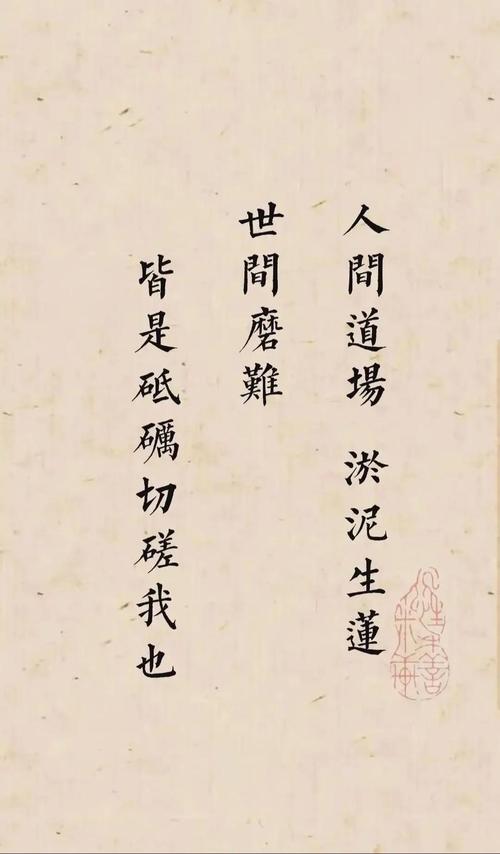 人間道場 淤泥生蓮
世間磨難
皆是砥礪切磋我也